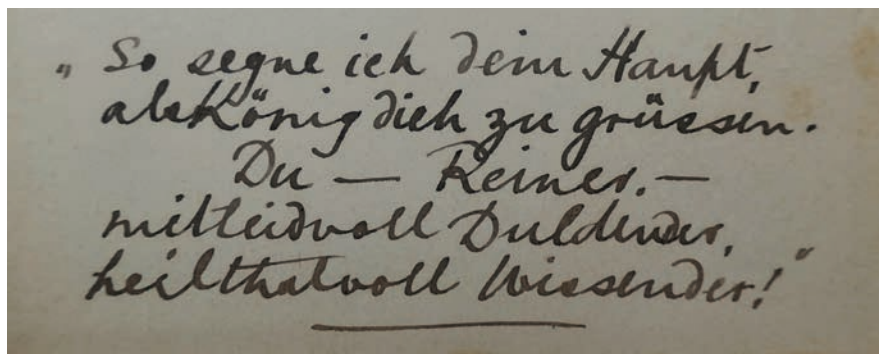 „So segne ich dein Haupt,
als König dich zu grüssen.
Du — Reiner. —
mitleidvoll Duldender,
heilthatvoll Wissender!"